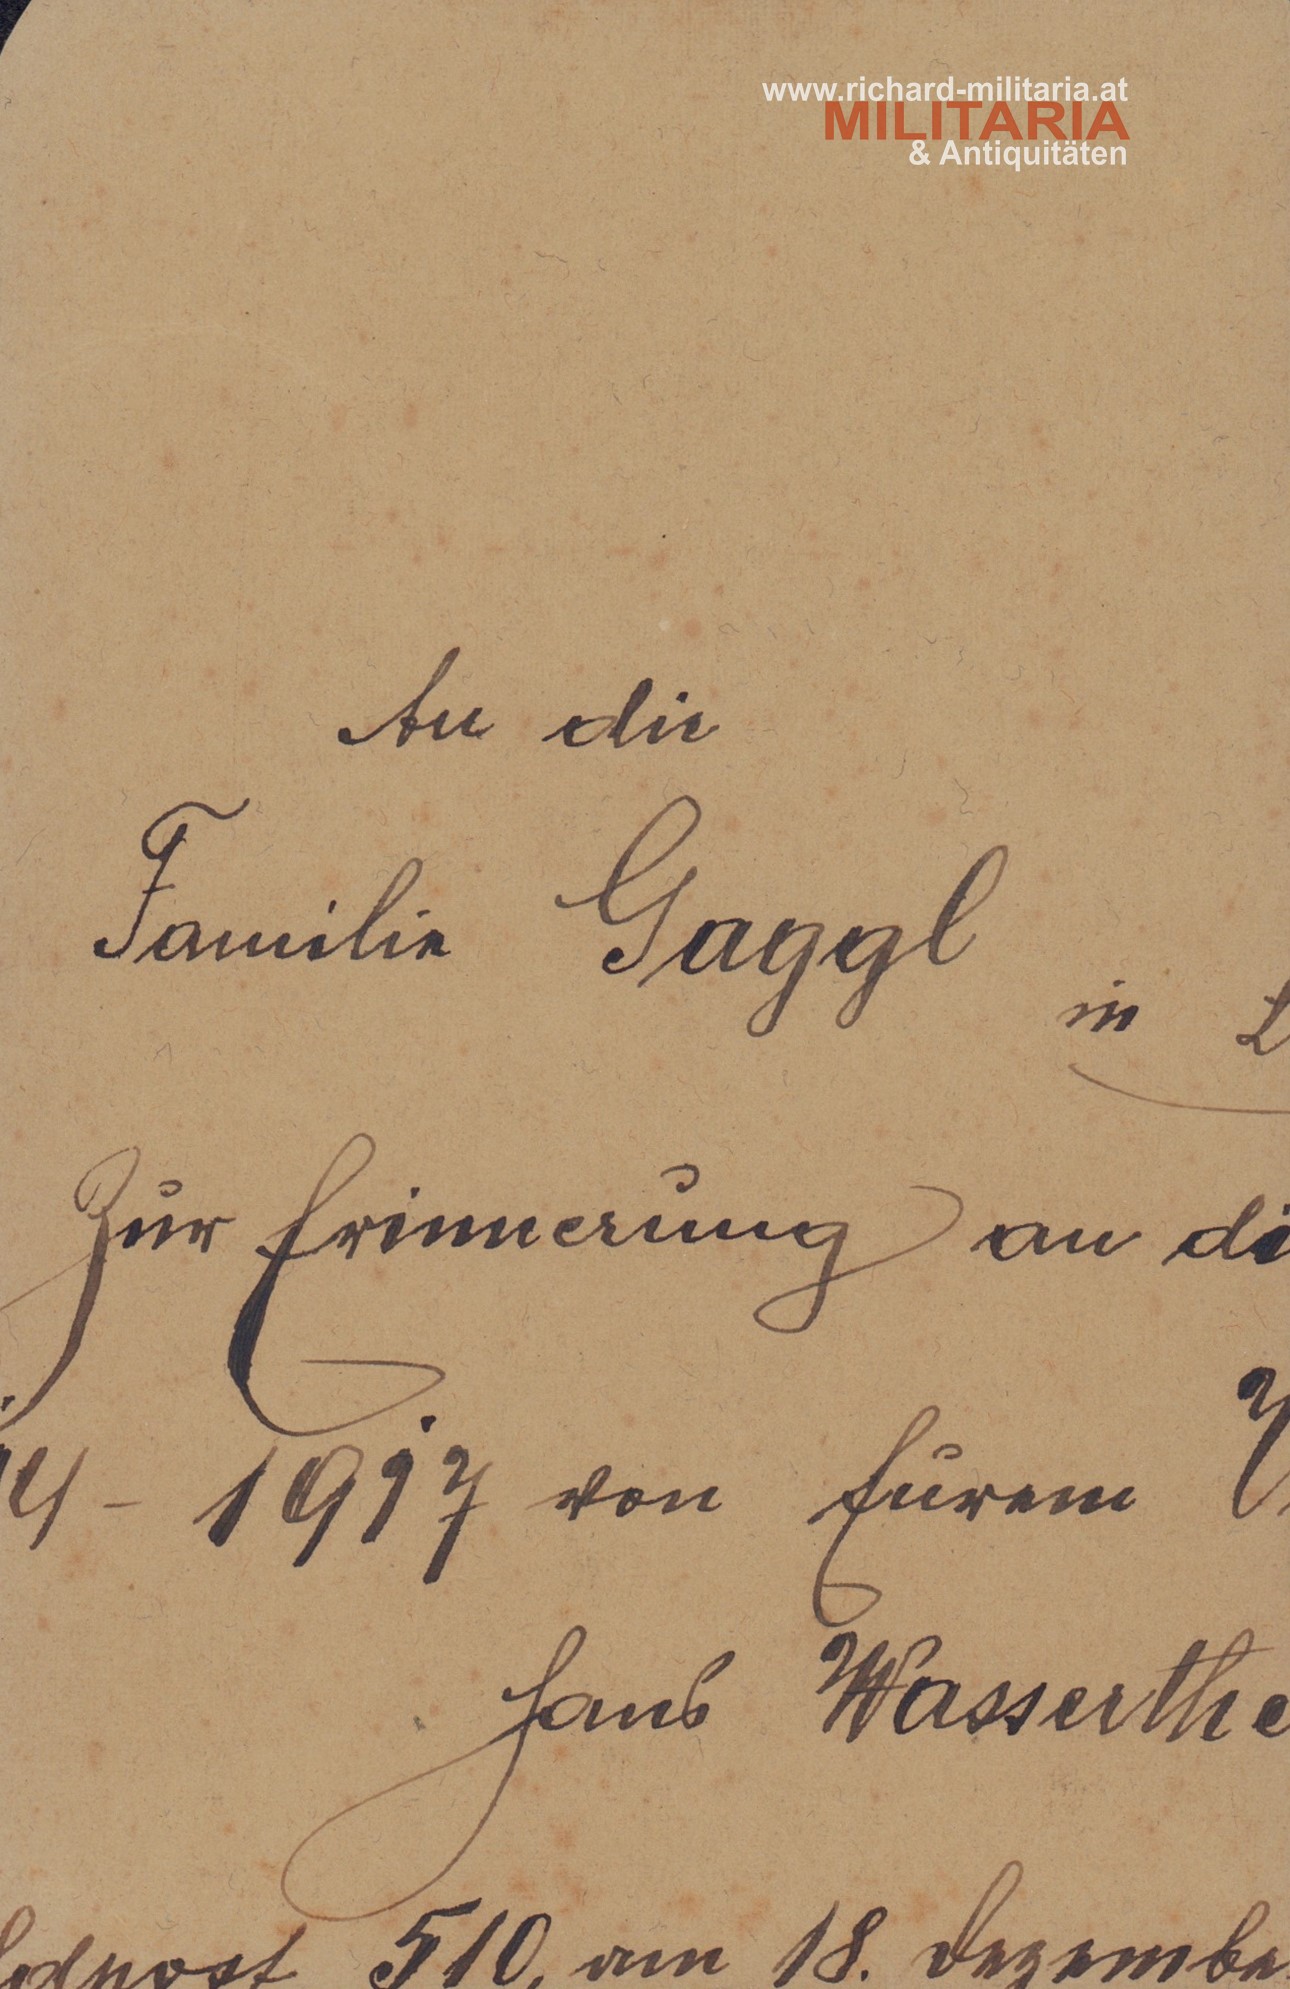 www.richard-militaria.at
MILITARIA
& Antiquitäten
An die
Familie Gaggl
in
Zur Erinnerung an di
14 - 1917 von Eurem
Hans Wasserthe
ldpost 510, am 18. Dezembe